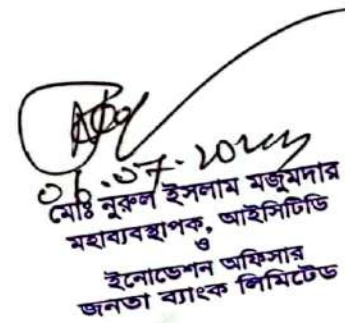 06.07.2022
মোঃ নুরুল ইসলাম মজুমদার
মহাব্যবস্থাপক, আইসিটিডি
ও
ইনোভেশন অফিসার
জনতা ব্যাংক লিমিটেড